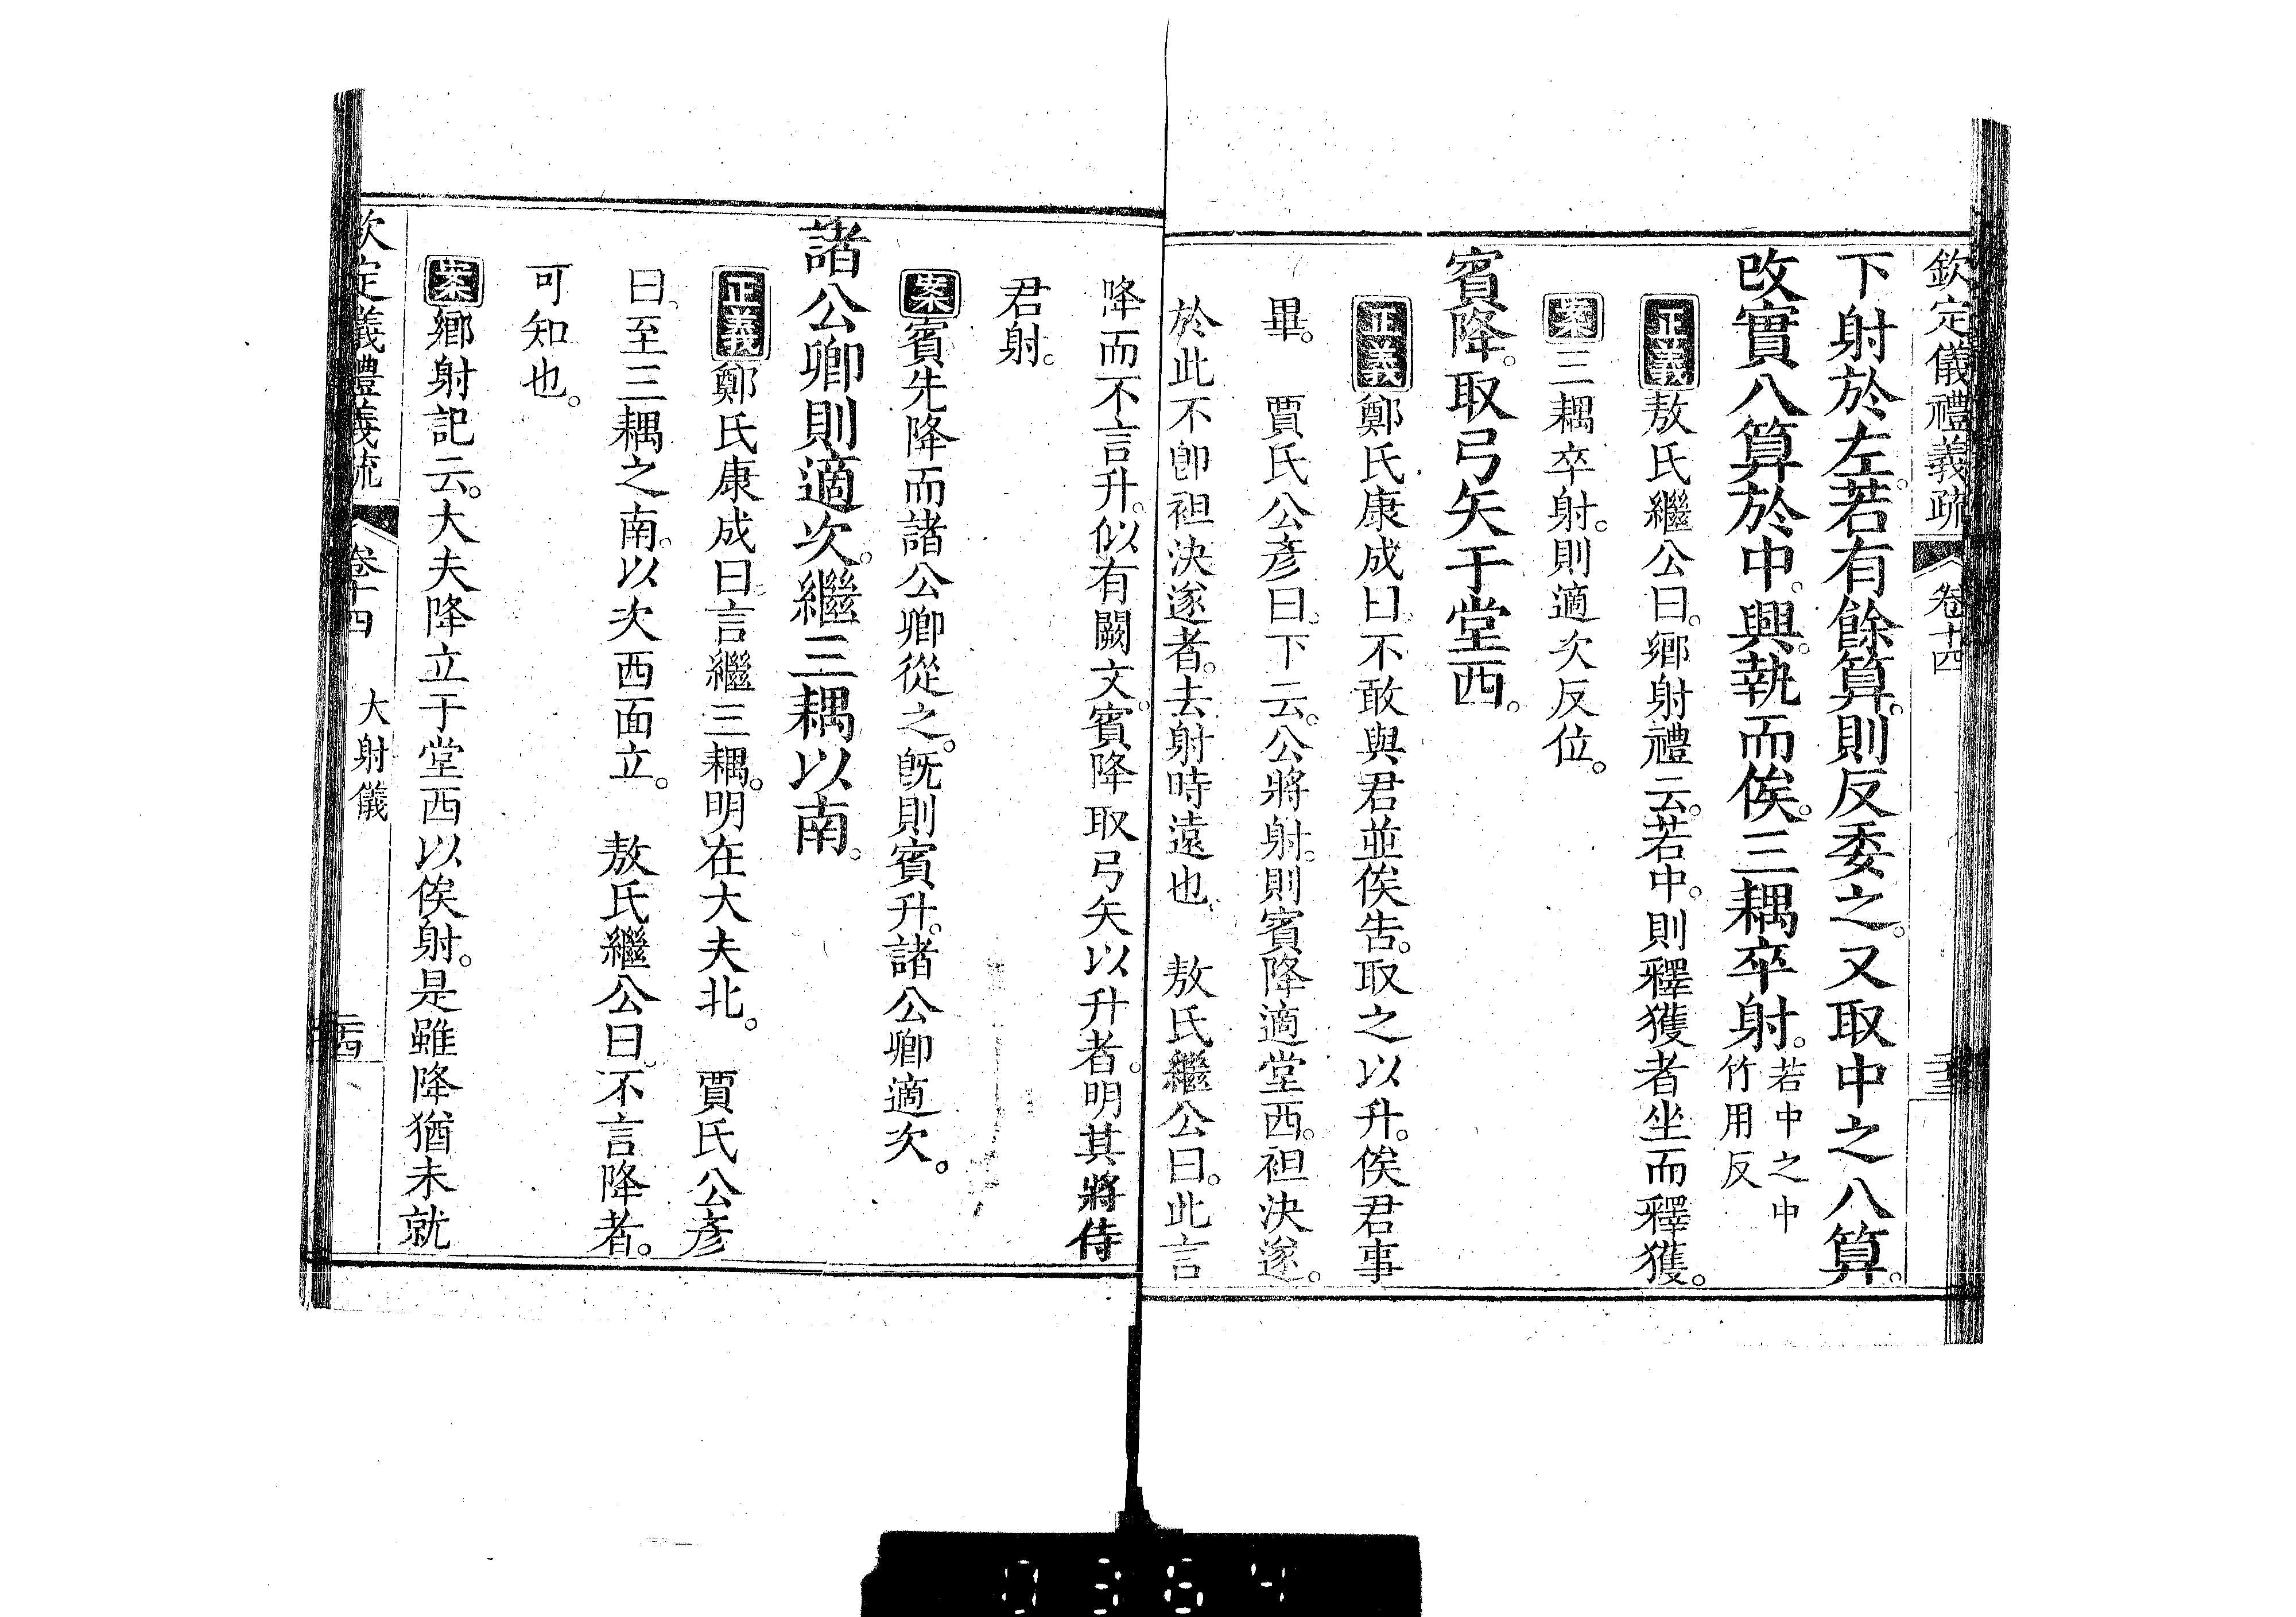 欽定儀禮義疏 卷十四 二三
下射於左。若有餘算。則反委之。又取中之八算。
改實八算於中。興。執而俟。三耦卒射。若中之中
竹用反
正義敖氏繼公曰。鄉射禮云。若中。則釋獲者坐而釋獲。
案三耦卒射。則適次反位。
賓降。取弓矢于堂西。
正義鄭氏康成曰。不敢與君並俟告。取之以升。俟君事
畢。 賈氏公彥曰。下云。公將射。則賓降適堂西。袒決遂。
於此不卽袒決遂者。去射時遠也。 敖氏繼公曰。此言
降而不言升。似有闕文。賓降取弓矢以升者。明其將侍
君射。
案賓先降而諸公卿從之。旣則賓升。諸公卿適次。
諸公卿則適次。繼三耦以南。
正義鄭氏康成曰。言繼三耦。明在大夫北。 賈氏公彥
曰。至三耦之南。以次西面立。 敖氏繼公曰。不言降者。
可知也。
案鄉射記云。大夫降立于堂西以俟射。是雖降猶未就
欽定儀禮義疏 卷十四 大射儀 二四
0364